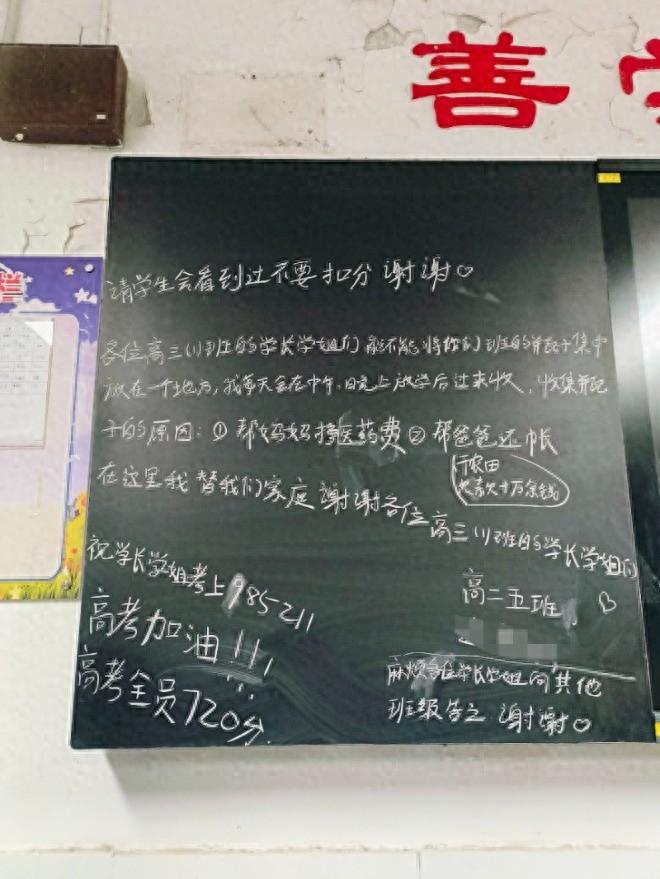 善学
栏
请学生会看到过不要扣分 谢谢♡
各位高三(1)班的学长学姐们 能不能将你们班的瓶子集中
放在一个地方,我每天会在中午、晚上放学后过来收,收集瓶
子的原因:① 帮妈妈挣医药费 ② 帮爸爸还帐
农田
欠十万余钱
在这里我替我们家庭 谢谢各位高三(1)班的学长学姐们
祝学长学姐考上985211
高考加油!!!
高考全员720分.
高二五班,
♡
麻烦各位学长学姐向其他
班级告之 谢谢♡